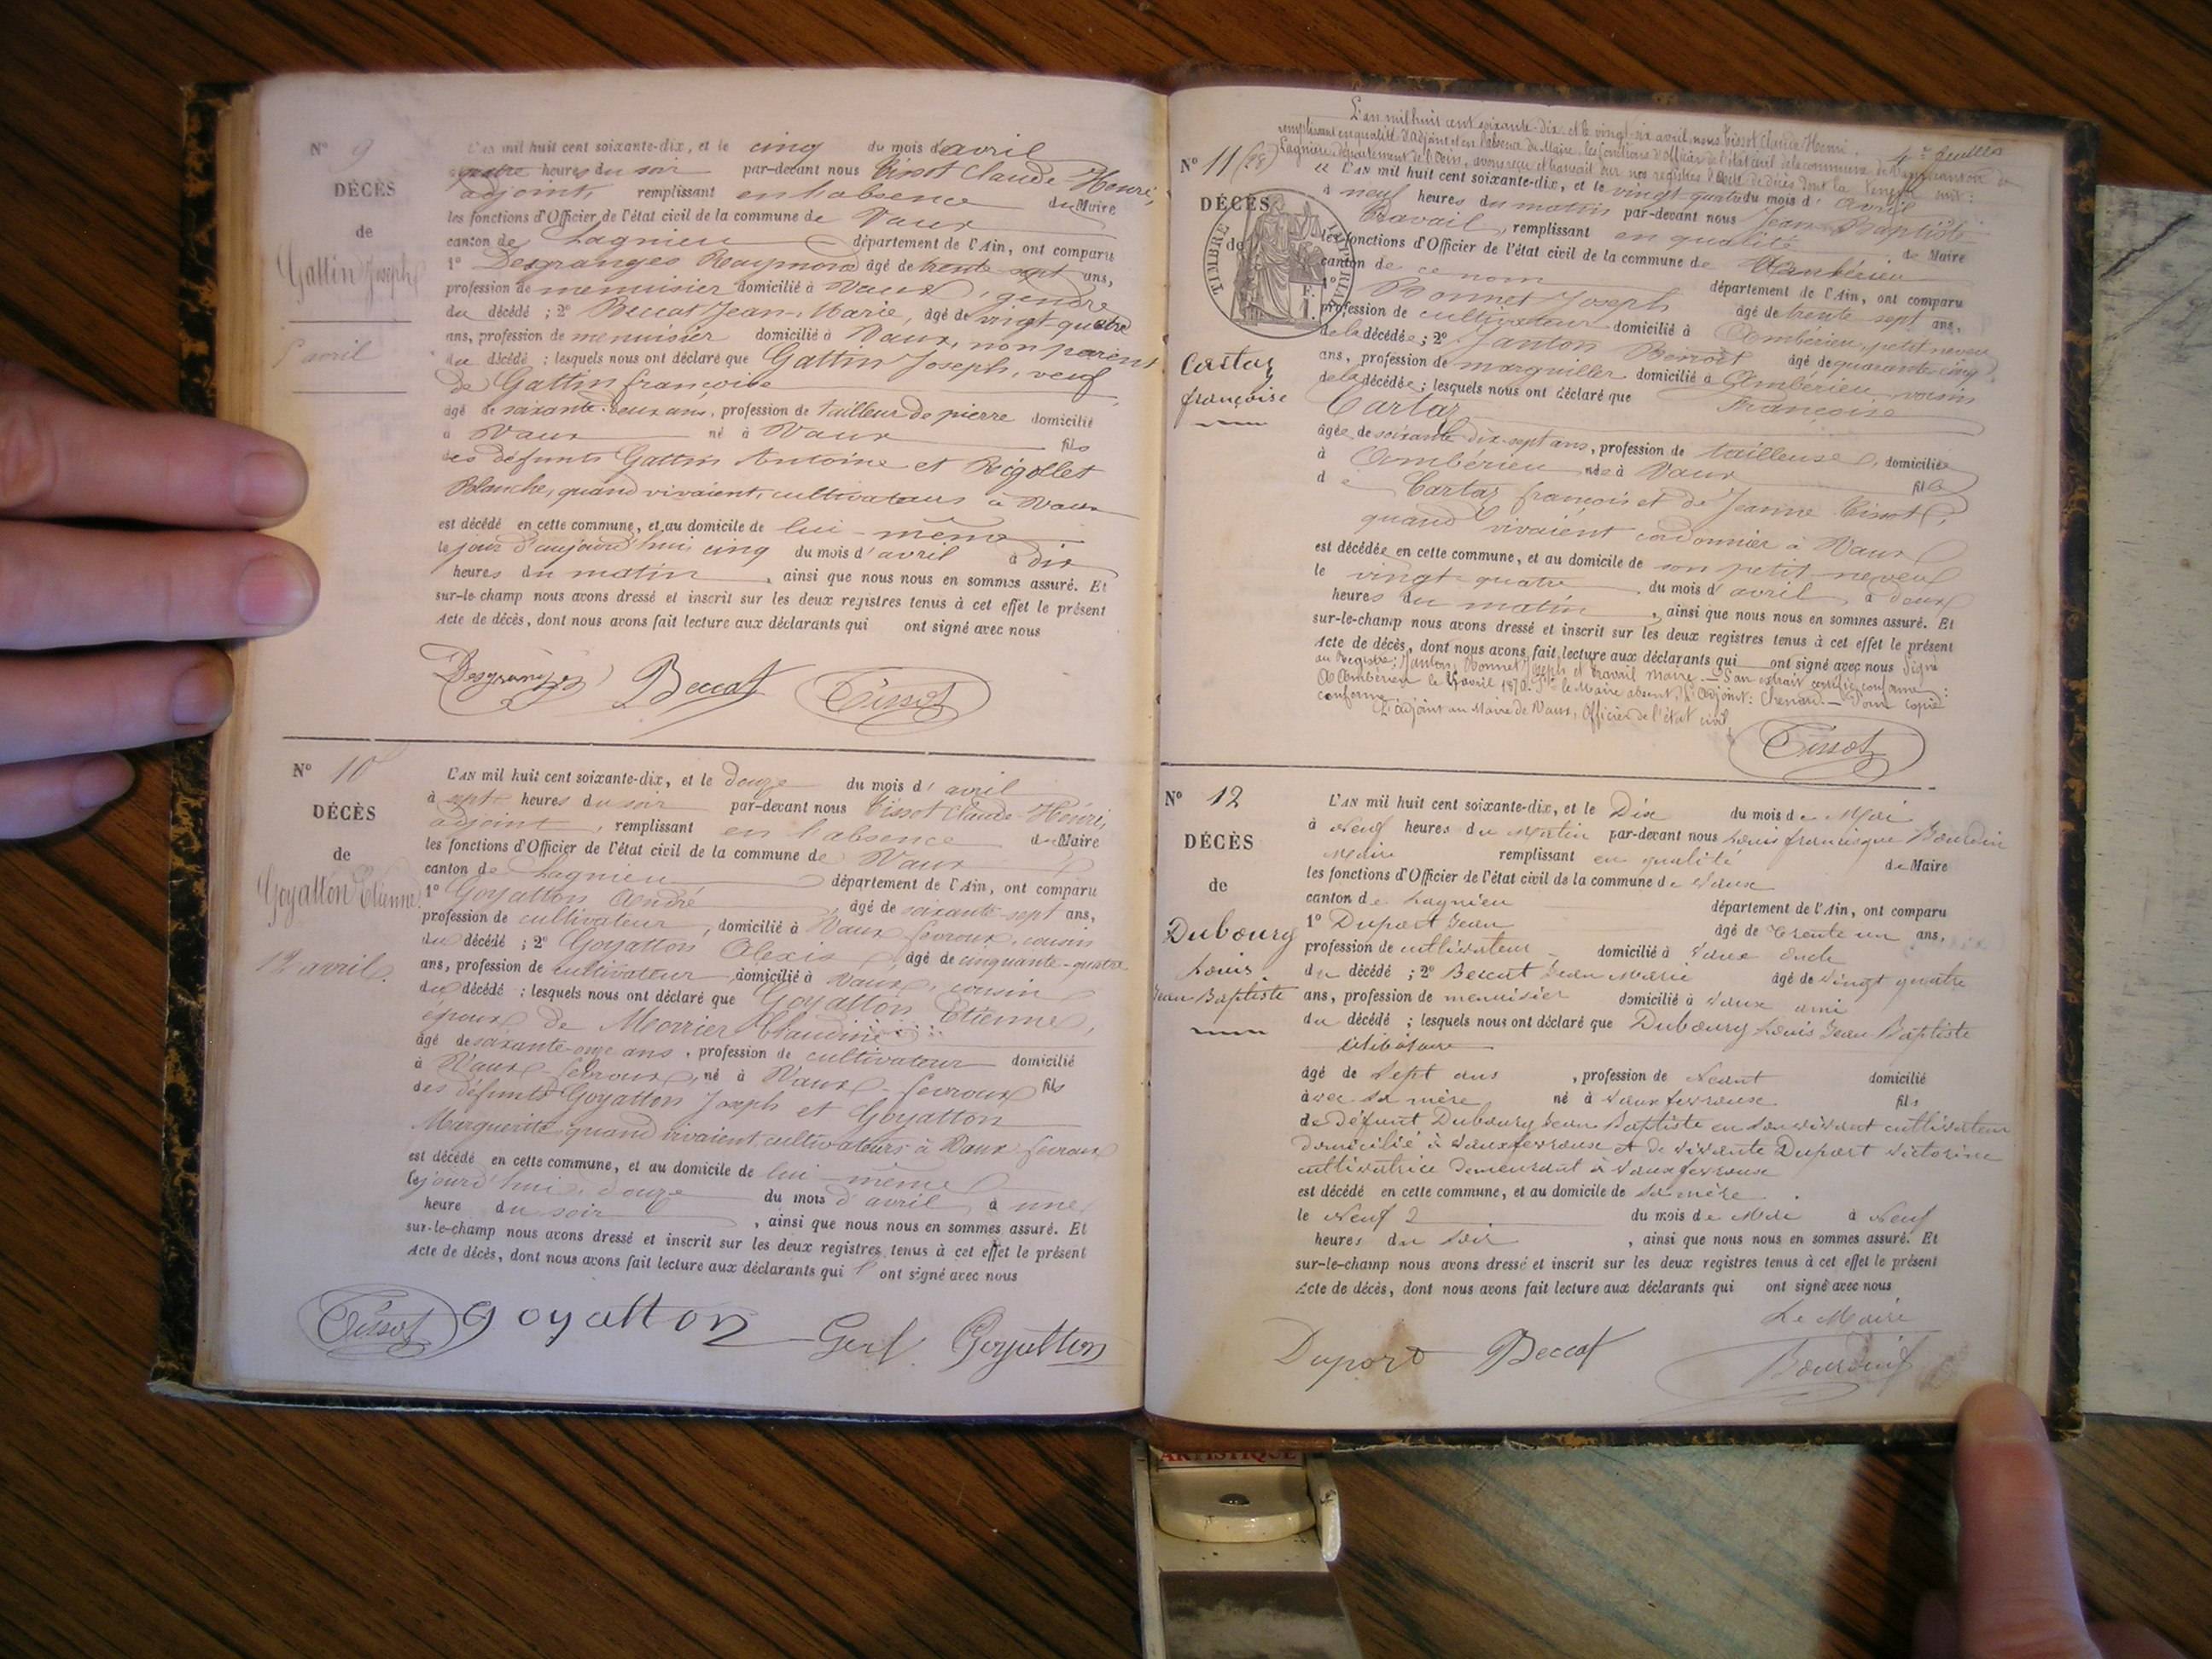 N° 9
DÉCÈS
de
Gattin Joseph
5 avril
L'an mil huit cent soixante-dix, et le cinq du mois d'avril
quatre heures du soir par-devant nous Tissot Claude Henri,
adjoint, remplissant en l'absence du Maire
les fonctions d'Officier de l'état civil de la commune de Vaux
canton de Lagnieu département de l'Ain, ont comparu
1° Desgranges Raymond âgé de trente-sept ans,
profession de menuisier domicilié à Vaux, gendre
du décédé ; 2° Beccat Jean-Marie, âgé de vingt-quatre
ans, profession de menuisier domicilié à Vaux, non parent
du décédé ; lesquels nous ont déclaré que Gattin Joseph, veuf
de Gattin françoise
âgé de soixante-deux ans, profession de tailleur de pierre domicilié
à Vaux né à Vaux fils
des défunts Gattin Antoine et Rigollet
Blanche, quand vivaient, cultivateurs à Vaux
est décédé en cette commune, et au domicile de lui-même
le jour d'aujourd'hui cinq du mois d'avril à dix
heures du matin, ainsi que nous nous en sommes assuré. Et
sur-le-champ nous avons dressé et inscrit sur les deux registres tenus à cet effet le présent
Acte de décès, dont nous avons fait lecture aux déclarants qui ont signé avec nous
Desgranges Beccat Tissot
N° 10
DÉCÈS
de
Goyatton Etienne
12 avril
L'AN mil huit cent soixante-dix, et le douze du mois d'avril
à sept heures du soir par-devant nous Tissot Claude-Henri,
adjoint, remplissant en l'absence du Maire
les fonctions d'Officier de l'état civil de la commune de Vaux
canton de Lagnieu département de l'Ain, ont comparu
1° Goyatton André, âgé de soixante-sept ans,
profession de cultivateur, domicilié à Vaux-fevroux, cousin
du décédé ; 2° Goyatton Alexis, âgé de cinquante-quatre
ans, profession de cultivateur domicilié à Vaux, cousin
du décédé ; lesquels nous ont déclaré que Goyatton Etienne,
époux de Morrier Claudine
âgé de soixante-onze ans, profession de cultivateur domicilié
à Vaux-fevroux, né à Vaux-fevroux fils
des défunts Goyatton Joseph et Goyatton
Marguerite, quand vivaient, cultivateurs à Vaux-fevroux
est décédé en cette commune, et au domicile de lui-même
le jourd'hui, douze du mois d'avril à une
heure du soir, ainsi que nous nous en sommes assuré. Et
sur-le-champ nous avons dressé et inscrit sur les deux registres tenus à cet effet le présent
Acte de décès, dont nous avons fait lecture aux déclarants qui ont signé avec nous
Tissot goyatton Goyatton
L'an mil huit cent soixante-dix et le vingt-six avril, nous Tissot Claude Henri,
remplissant en qualité d'adjoint et en l'absence du Maire, les fonctions d'Officier de l'état civil de la commune de Vaux, canton de
Lagnieu, département de l'Ain, avons reçu et transcrit sur nos registres l'acte de décès dont la teneur suit :
4e feuillet
N° 11 (28)
DÉCÈS
de
TIMBRE IMPÉRIAL
Cartaz
françoise
« L'AN mil huit cent soixante-dix, et le vingt quatre du mois d'avril
à neuf heures du matin par-devant nous Jean-Baptiste
Travail, remplissant en qualité de Maire
les fonctions d'Officier de l'état civil de la commune de d'Ambérieu
canton de ce nom département de l'Ain, ont comparu
1° Bonnet Joseph âgé de trente sept ans,
profession de cultivateur domicilié à Ambérieu, petit neveu
de la décédée ; 2° Janton Benoit âgé de quarante cinq
ans, profession de marguiller domicilié à Ambérieu, voisin
de la décédée ; lesquels nous ont déclaré que
Cartaz Françoise
âgée de soixante dix-sept ans, profession de tailleuse, domiciliée
à Ambérieu née à Vaux fille
de Cartaz françois et de Jeanne Tissot,
quand vivaient cordonnier à Vaux
est décédée en cette commune, et au domicile de son petit neveu
le vingt-quatre du mois d'avril, à deux
heures du matin, ainsi que nous nous en sommes assuré. Et
sur-le-champ nous avons dressé et inscrit sur les deux registres tenus à cet effet le présent
Acte de décès, dont nous avons fait lecture aux déclarants qui ont signé avec nous Signé
au Registre : Janton, Bonnet Joseph et Travail maire. — Par extrait certifié conforme :
A Ambérieu le avril 1870. Pr le Maire absent, L'Adjoint : Chenard. — Pour copie
conforme.
L'adjoint au Maire de Vaux, Officier de l'état civil
Tissot
N° 12
DÉCÈS
de
Dubourg
Louis
Jean Baptiste
L'AN mil huit cent soixante-dix, et le Dix du mois de Mai
à neuf heures du Matin par-devant nous Louis francisque Bourdin
Maire remplissant en qualité de Maire
les fonctions d'Officier de l'état civil de la commune de Vaux
canton de Lagnieu département de l'Ain, ont comparu
1° Duport Jean âgé de trente un ans,
profession de cultivateur domicilié à Vaux oncle
du décédé ; 2° Beccat Jean Marie âgé de vingt quatre
ans, profession de menuisier domicilié à Vaux ami
du décédé ; lesquels nous ont déclaré que Dubourg Louis Jean Baptiste
célibataire
âgé de Sept ans, profession de néant domicilié
avec sa mère né à Vaux fevroux fils
de défunt Dubourg Jean Baptiste en son vivant cultivateur
domicilié à Vaux fevroux et de vivante Duport Victorine
cultivatrice demeurant à Vaux fevroux
est décédé en cette commune, et au domicile de sa mère
le neuf du mois de Mai à neuf
heures du soir, ainsi que nous nous en sommes assuré. Et
sur-le-champ nous avons dressé et inscrit sur les deux registres tenus à cet effet le présent
Acte de décès, dont nous avons fait lecture aux déclarants qui ont signé avec nous
Le Maire
Duport Beccat Bourdin
ARTISTIQUE